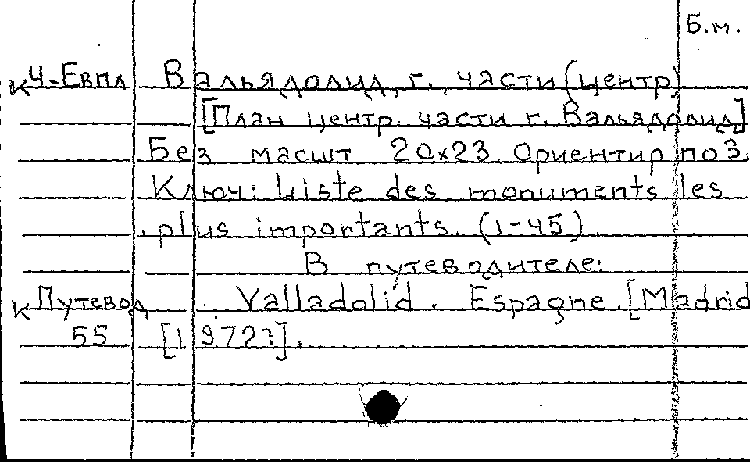 Б.м.
К Ч-Евпл Вальядолид, г. части (центр)
[План центр. части г. Вальядолид]
Без масшт 20x23 Ориентир по З.
Ключ: Liste des monuments les
plus importants. (1-45)
В путеводителе:
К Путевод Valladolid. Espagne. [Madrid
55 [1972?].